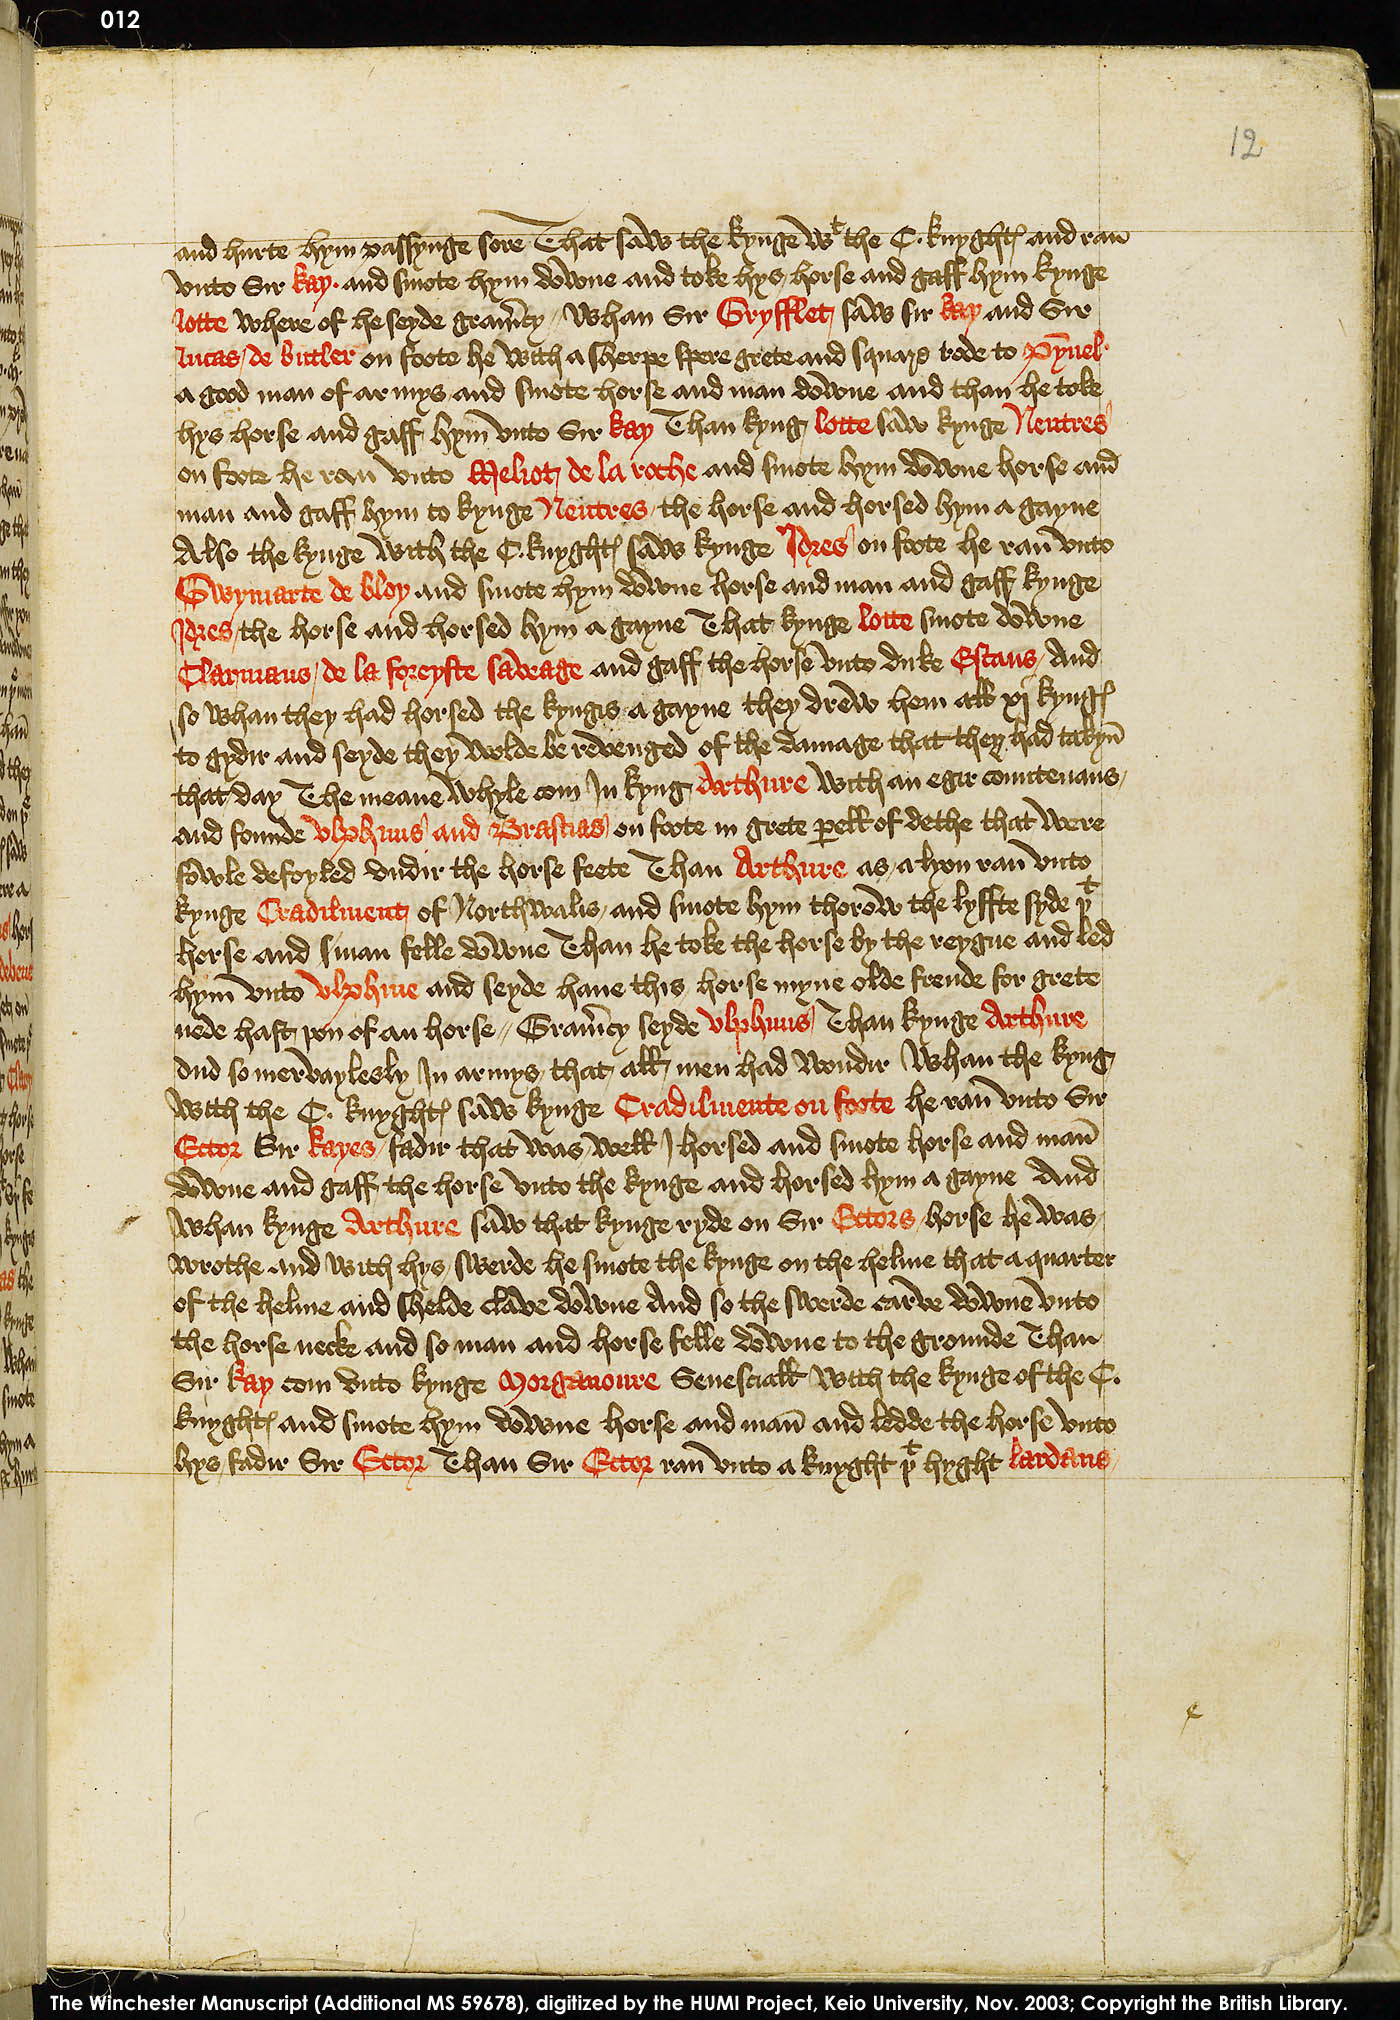 012
12
and hurte hym passynge sore That saw the kynge wt the C. knyghtes and ran
vnto Sir kay. and smote hym downe and toke hys horse and gaff hym kynge
lotte where of he seyde gramcy // Whan Sir Gryfflet saw sir kay and Sir
lucas de butler on foote he with a sherpe spere grete and square rode to Pynel.
a good man of armys and smote horse and man downe and than he toke
hys horse and gaff hym vnto Sir kay Than kyng lotte saw kynge Nentres
on foote he ran vnto Meliot de la roche and smote hym downe horse and
man and gaff hym to kynge Nentres the horse and horsed hym a gayne
Also the kynge with the C. knyghtes saw kynge Idres on foote he ran vnto
Gwymarte de bloy and smote hym downe horse and man and gaff kynge
Idres the horse and horsed hym a gayne That kynge lotte smote downe
Clarinaus de la foreyste saveage and gaff the horse vnto duke Estans And
so whan they had horsed the kyngis a gayne they drew hem all xj kynges
to gydir and seyde they wolde be revenged of the damage that they had takyn
that day The meane whyle com In kyng Arthure with an egir countenans
and founde vlphuns and Brascias on foote in grete pell of dethe that were
fowle defoyled vndir the horse feete Than Arthure as a lyon ran vnto
kynge Cradilment of Northwalis and smote hym thorow the lyffte syde yt
horse and man felle downe Than he toke the horse by the reygne and led
hym vnto vlphine and seyde haue this horse myne olde frende for grete
nede hast yon of an horse // Gramcy seyde vlphuns Than kynge Arthure
dud so mervaylesly In armys that all men had wondir Whan the kyng
with the C. knyghtes saw kynge Cradilmente on foote he ran vnto Sir
Ector Sir kayes fadir that was well I horsed and smote horse and man
downe and gaff the horse vnto the kynge and horsed hym a gayne And
Whan kynge Arthure saw that kynge ryde on Sir Ectors horse he was
wrothe and with hys swerde he smote the kynge on the helme that a quarter
of the helme and shelde clave downe And so the swerde carve downe vnto
the horse necke and so man and horse felle downe to the grounde Than
Sir kay com vnto kynge Morganoure Senesciall with the kynge of the C.
knyghtes and smote hym downe horse and man and ledde the horse vnto
hys fadir Sir Ector Than Sir Ector ran vnto a knyght yt hyght lardans
The Winchester Manuscript (Additional MS 59678), digitized by the HUMI Project, Keio University, Nov. 2003; Copyright the British Library.